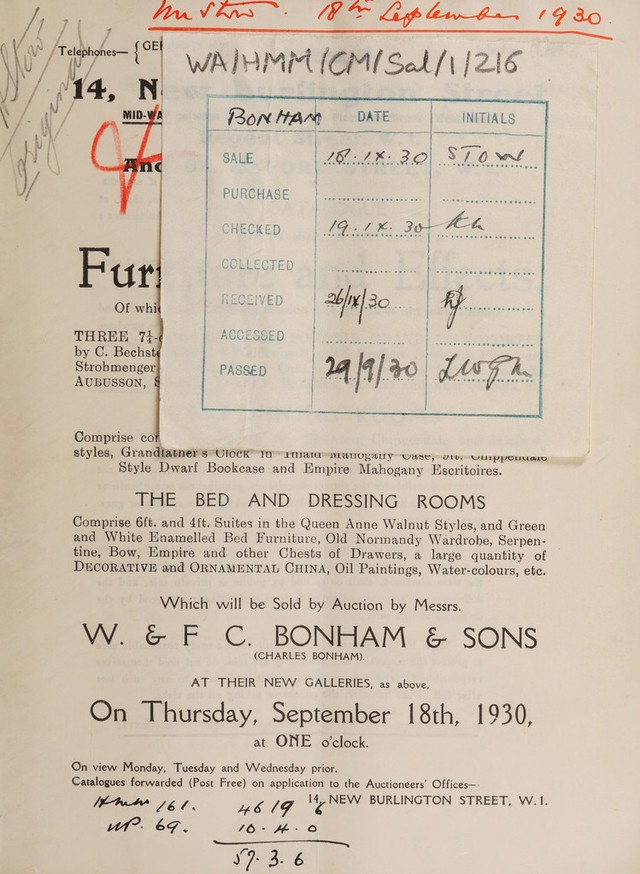 Mr Stow. 18th September 1930
Stow
original
Telephones— { GE
WA/HMM/CM/Sal/1/216
14, N
MID-WA
BONHAM DATE INITIALS
SALE 18.IX.30 STOW
Anc
PURCHASE
CHECKED 19.IX.30
COLLECTED
Furn
RECEIVED 26/IX/30
Of whi
ACCESSED
THREE 7¼-
by C. Bechste
PASSED 29/9/30
Strohmenger
AUBUSSON, S
Comprise co
styles, Grandfather's Clock in Inlaid Mahogany Case, 5ft. Chippendale
Style Dwarf Bookcase and Empire Mahogany Escritoires.
THE BED AND DRESSING ROOMS
Comprise 6ft. and 4ft. Suites in the Queen Anne Walnut Styles, and Green
and White Enamelled Bed Furniture, Old Normandy Wardrobe, Serpen-
tine, Bow, Empire and other Chests of Drawers, a large quantity of
DECORATIVE and ORNAMENTAL CHINA, Oil Paintings, Water-colours, etc.
Which will be Sold by Auction by Messrs.
W. & F C. BONHAM & SONS
(CHARLES BONHAM).
AT THEIR NEW GALLERIES, as above,
On Thursday, September 18th, 1930,
at ONE o'clock.
On view Monday, Tuesday and Wednesday prior.
Catalogues forwarded (Post Free) on application to the Auctioneers' Offices—
14, NEW BURLINGTON STREET, W.1.
161. 46 19 6
69. 10.4.0
57.3.6